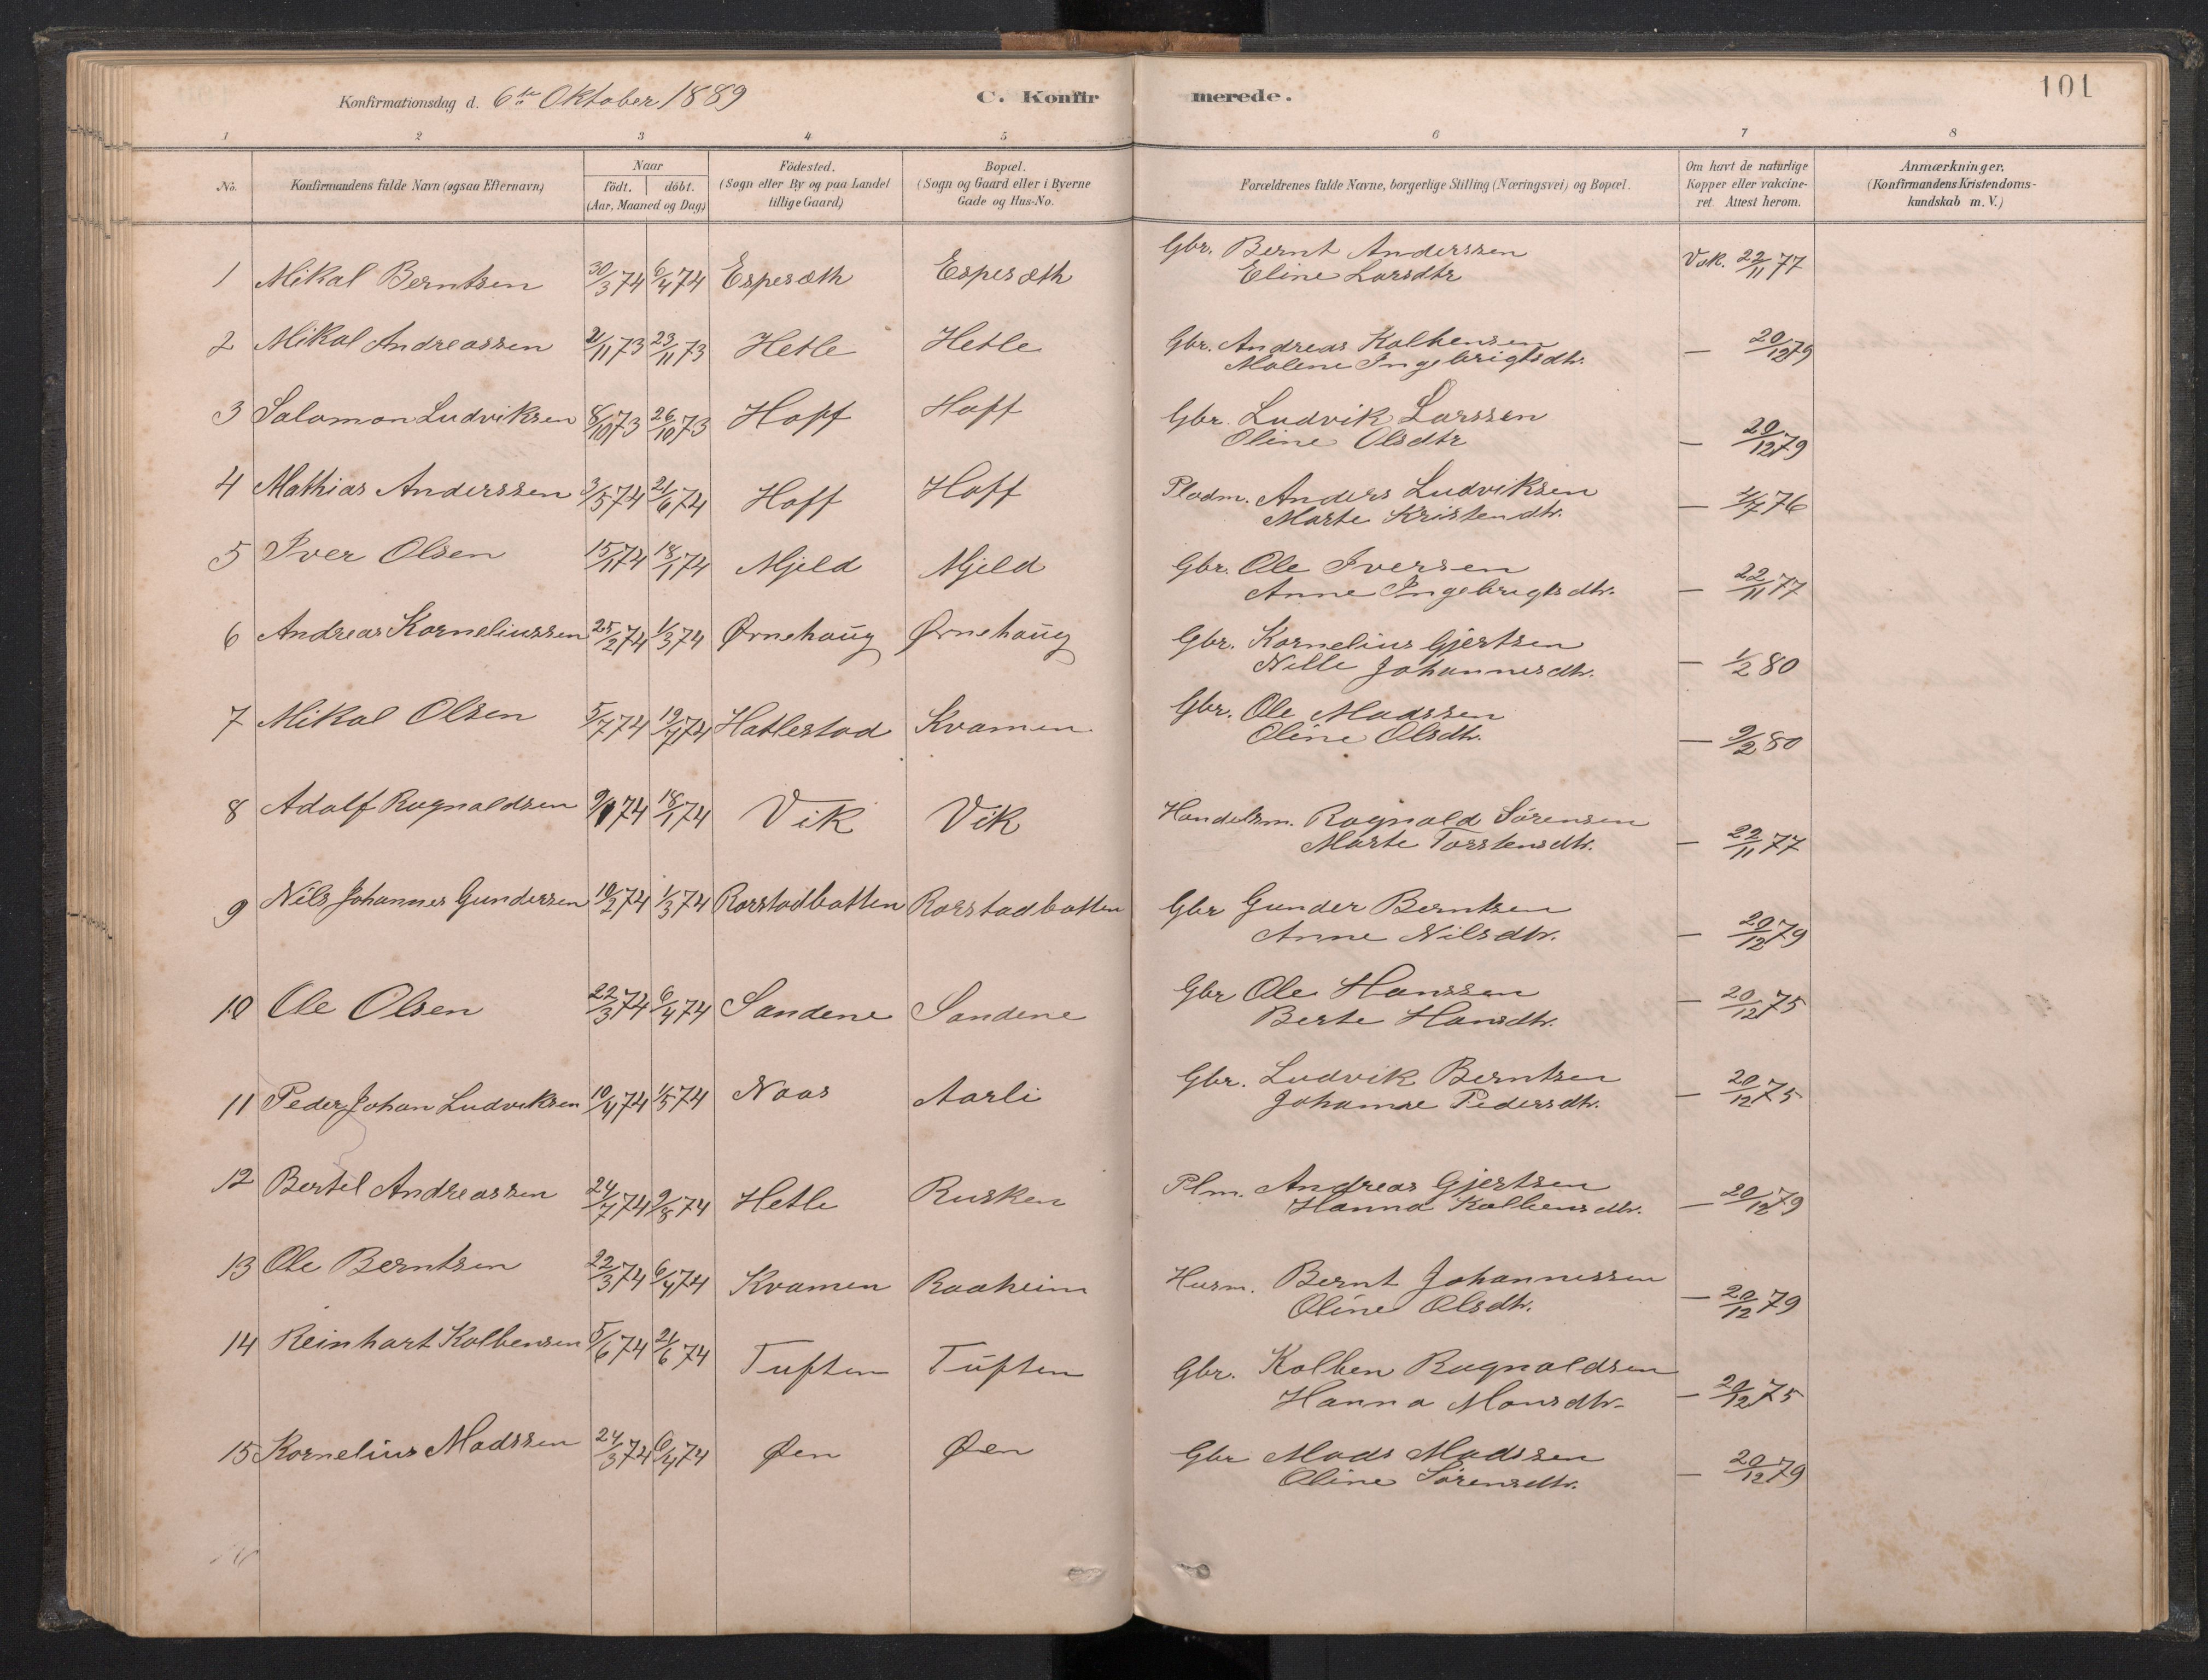 Konfirmationsdag d. 6te Oktober 1889 C. Konfirmerede. 101
1 2 3 4 5 6 7 8
No. Konfirmandens fulde Navn (ogsaa Efternavn) Naar födt. döbt. (Aar, Maaned og Dag) Födested. (Sogn eller By og paa Landet tillige Gaard) Bopæl. (Sogn og Gaard eller i Byerne Gade og Hus-No. Forældrenes fulde Navne, borgerlige Stilling (Næringsvei) og Bopæl. Om havt de naturlige Kopper eller vakcineret. Attest herom. Anmærkninger. (Konfirmandens Kristendomskundskab m. V.)
1 Mikal Berntsen 30/3 74 6/4 74 Espesæth Espesæth Gbr. Bernt Anderssen Vak. 22/11 77
Eline Larsdtr
2 Mikal Andreassen 2/11 73 23/11 73 Hetle Hetle Gbr. Andreas Kolbensen — 20/12 79
Malene Ingebrigtsdtr.
3 Salomon Ludviksen 8/10 73 26/10 73 Hoff Hoff Gbr. Ludvik Larssen — 20/12 79
Oline Olsdtr
4 Mathias Anderssen 3/5 74 21/6 74 Hoff Hoff Pladm. Anders Ludviksen — 4/7 76
Marte Kristendtr.
5 Iver Olsen 15/1 74 18/1 74 Mjeld Mjeld Gbr. Ole Iversen — 22/11 77
Anne Ingebrigtsdtr.
6 Andreas Korneliussen 25/2 74 1/3 74 Ørnehaug Ørnehaug Gbr. Kornelius Gjertsen — 1/2 80
Nille Johannesdtr.
7 Mikal Olsen 5/7 74 19/7 74 Hatlestad Kvamen Gbr. Ole Madssen — 9/2 80
Oline Olsdtr.
8 Adolf Ragnaldsen 9/1 74 18/1 74 Vik Vik Handelsm. Ragnald Sörensen — 22/11 77
Marte Torstensdtr.
9 Nils Johannes Gundersen 10/2 74 1/3 74 Rorstadbotten Rorstadbotten Gbr Gunder Berntsen — 20/12 79
Anne Nilsdtr.
10 Ole Olsen 22/3 74 6/4 74 Sandene Sandene Gbr Ole Hanssen — 20/12 75
Berte Hansdtr.
11 Peder Johan Ludviksen 10/4 74 1/5 74 Naas Aarli Gbr. Ludvik Berntsen — 20/12 75
Johanne Pedersdtr.
12 Bertel Andreassen 24/7 74 9/8 74 Hetle Rusken Plm. Andreas Gjertsen — 20/12 79
Hanna Kolbensdtr.
13 Ole Berntsen 22/3 74 6/4 74 Kvamen Raaheim Husm. Bernt Johannessen — 20/12 79
Oline Olsdtr.
14 Reinhart Kolbensen 5/6 74 21/6 74 Tuften Tuften Gbr. Kolben Ragnaldsen — 20/12 75
Hanna Monsdtr.
15 Kornelius Madssen 24/3 74 6/4 74 Øen Øen Gbr Mads Madssen — 20/12 79
Oline Sörensdtr.